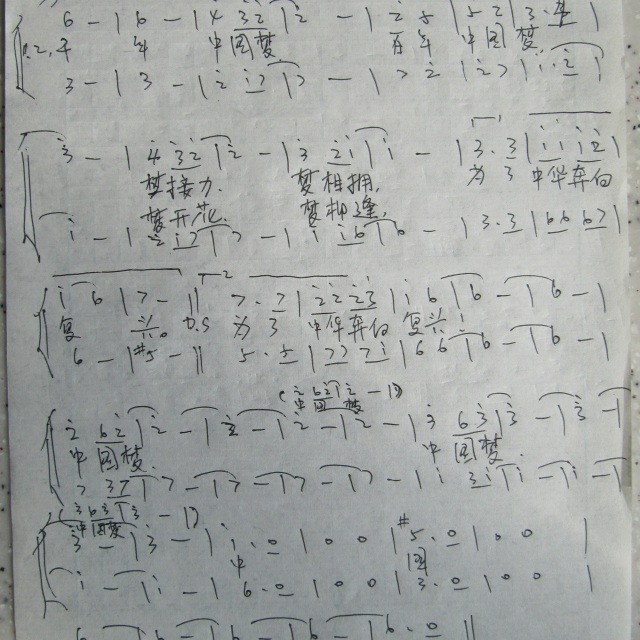 6 - | 6 - | 4 3 2 | 2 - | 2 5 | 5 2 | 3 |
年 年 中国梦 百年 中国梦
3 - | 3 - | 2 | 7 - | 7 2 | 2 7 | 1 2 |
3 - | 4 3 2 | 2 - | 3 2 1 | 1 - | 3 . 3 | 1 1 1 2 |
梦接力 梦相拥 为了 中华奔向
梦开花 梦相逢
1 - | 2 1 7 | 7 - | 1 1 6 | 6 - | 3 . 3 | 6 6 6 7 |
1 6 | 7 - || 7 . 7 | 2 2 2 3 | 1 6 | 6 - | 6 - |
复 兴。 0.5 为了 中华奔向 复兴
6 - | #5 - || 5 . 5 | 7 7 2 1 | 6 6 | 6 - | 6 - |
中国梦 - |)
2 6 2 | 2 - | 2 - | 2 - | 2 - | 3 6 3 | 3 - | 3 -
中国梦 中国梦
7 3 7 | 7 - | 7 - | 7 - | 7 - | 1 3 1 | 1 - | 1 -
中国梦 - |)
3 - | 3 - | 1 . 0 | 0 0 | #5 . 0 | 0 0 |
中 国
1 - | 1 - | 6 . 0 | 0 0 | 3 . 0 | 0 0 |
6 - | 6 - | 6 - | 6 - | 6 . 0 ||